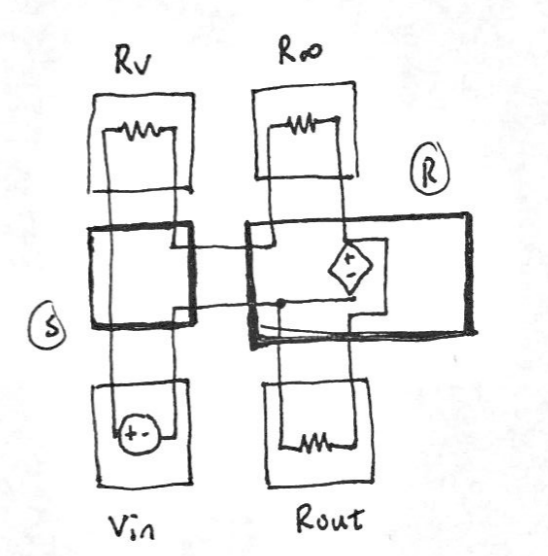 Rv
R∞
R
+
-
S
+-
Vin
Rout